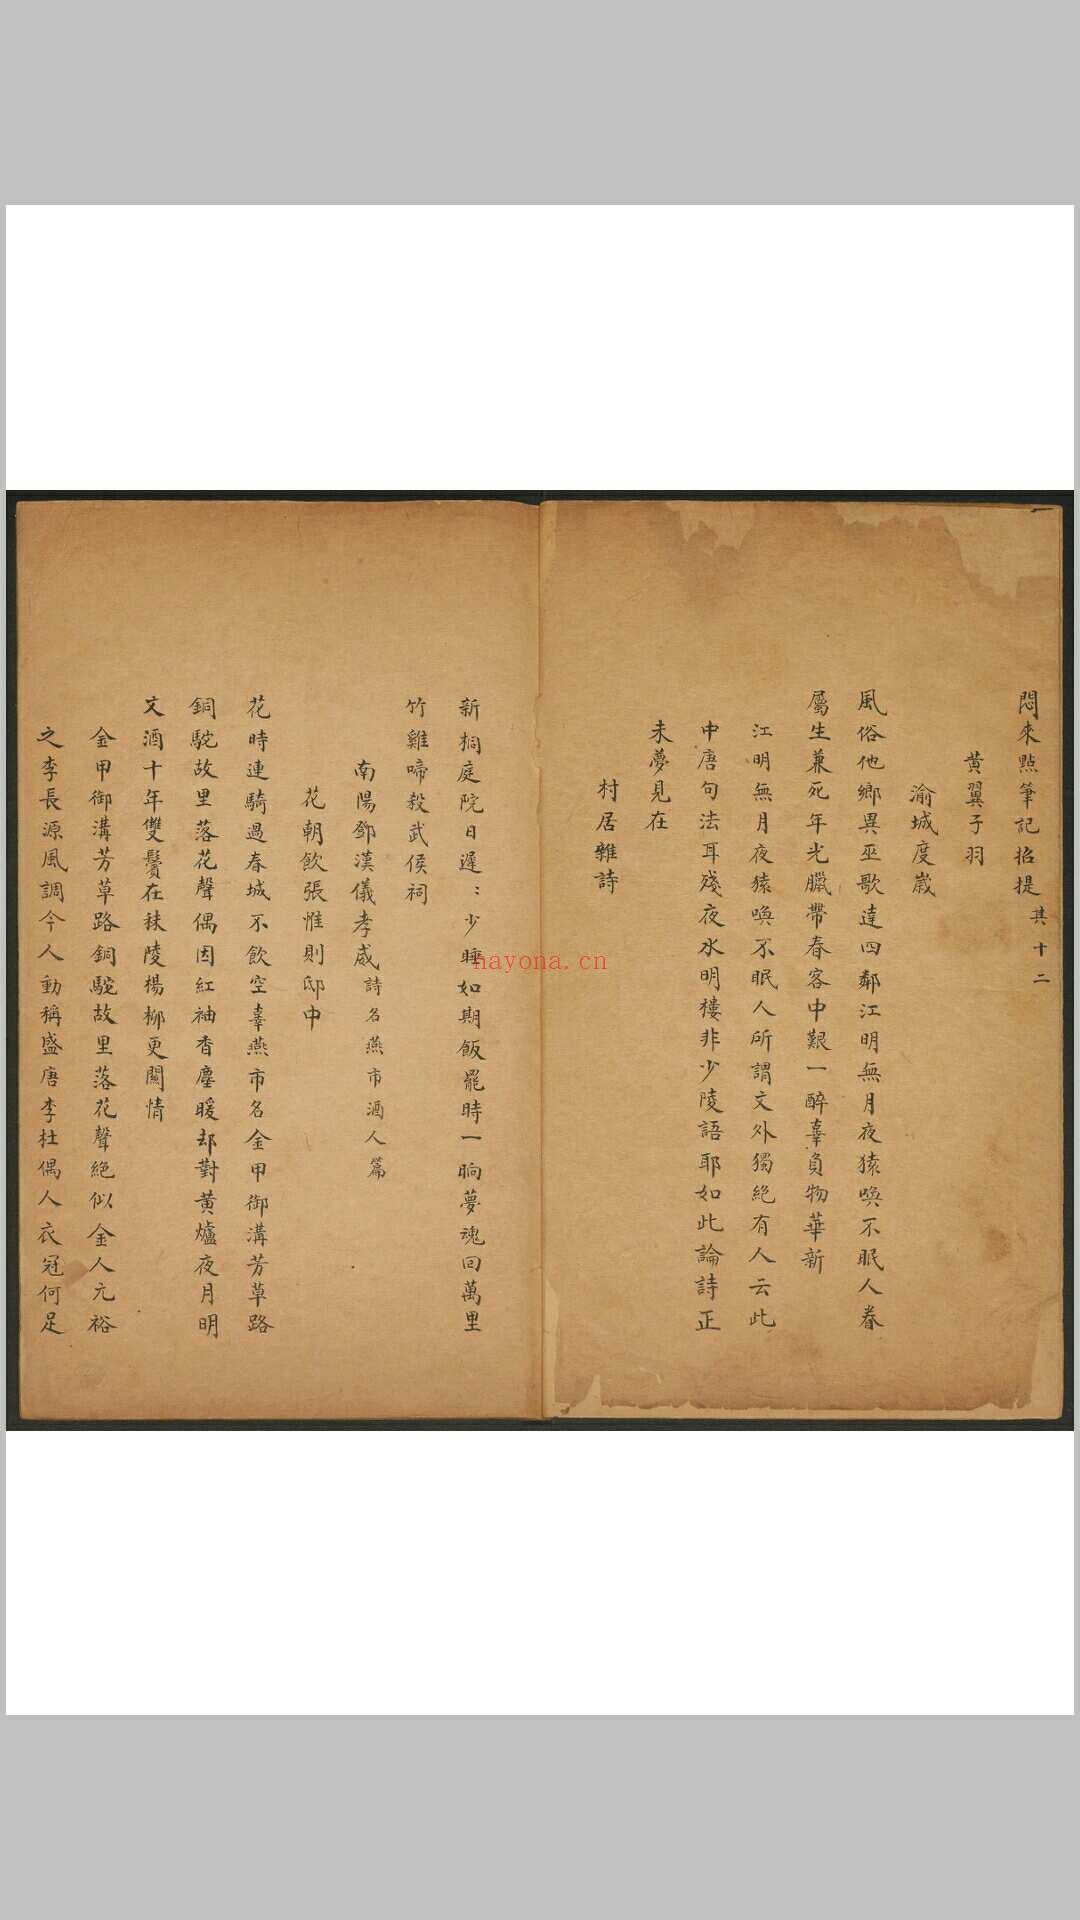 悶來點筆記招提其十二
黄翼子羽
渝城度歲
風俗他鄉異巫歌達四鄰江明無月夜猿喚不眠人眷
屬生兼死年光臘帶春客中艱一醉辜負物華新
江明無月夜猿喚不眠人所謂文外獨絕有人云此
中唐句法耳殘夜水明樓非少陵語耶如此論詩正
未夢見在
村居雜詩
新桐庭院日遲：少睡如期飯罷時一晌夢魂回萬里
竹雞啼殺武侯祠
南陽鄧漢儀孝威詩名燕市酒人篇
花朝飲張惟則邸中
花時連騎過春城不飲空辜燕市名金甲御溝芳草路
銅駝故里落花聲偶因紅袖香塵暖却對黄爐夜月明
文酒十年雙鬢在秣陵楊柳更關情
金甲御溝芳草路銅駝故里落花聲絕似金人元裕
之李長源風調今人動稱盛唐李杜偶人衣冠何足
nayona.cn